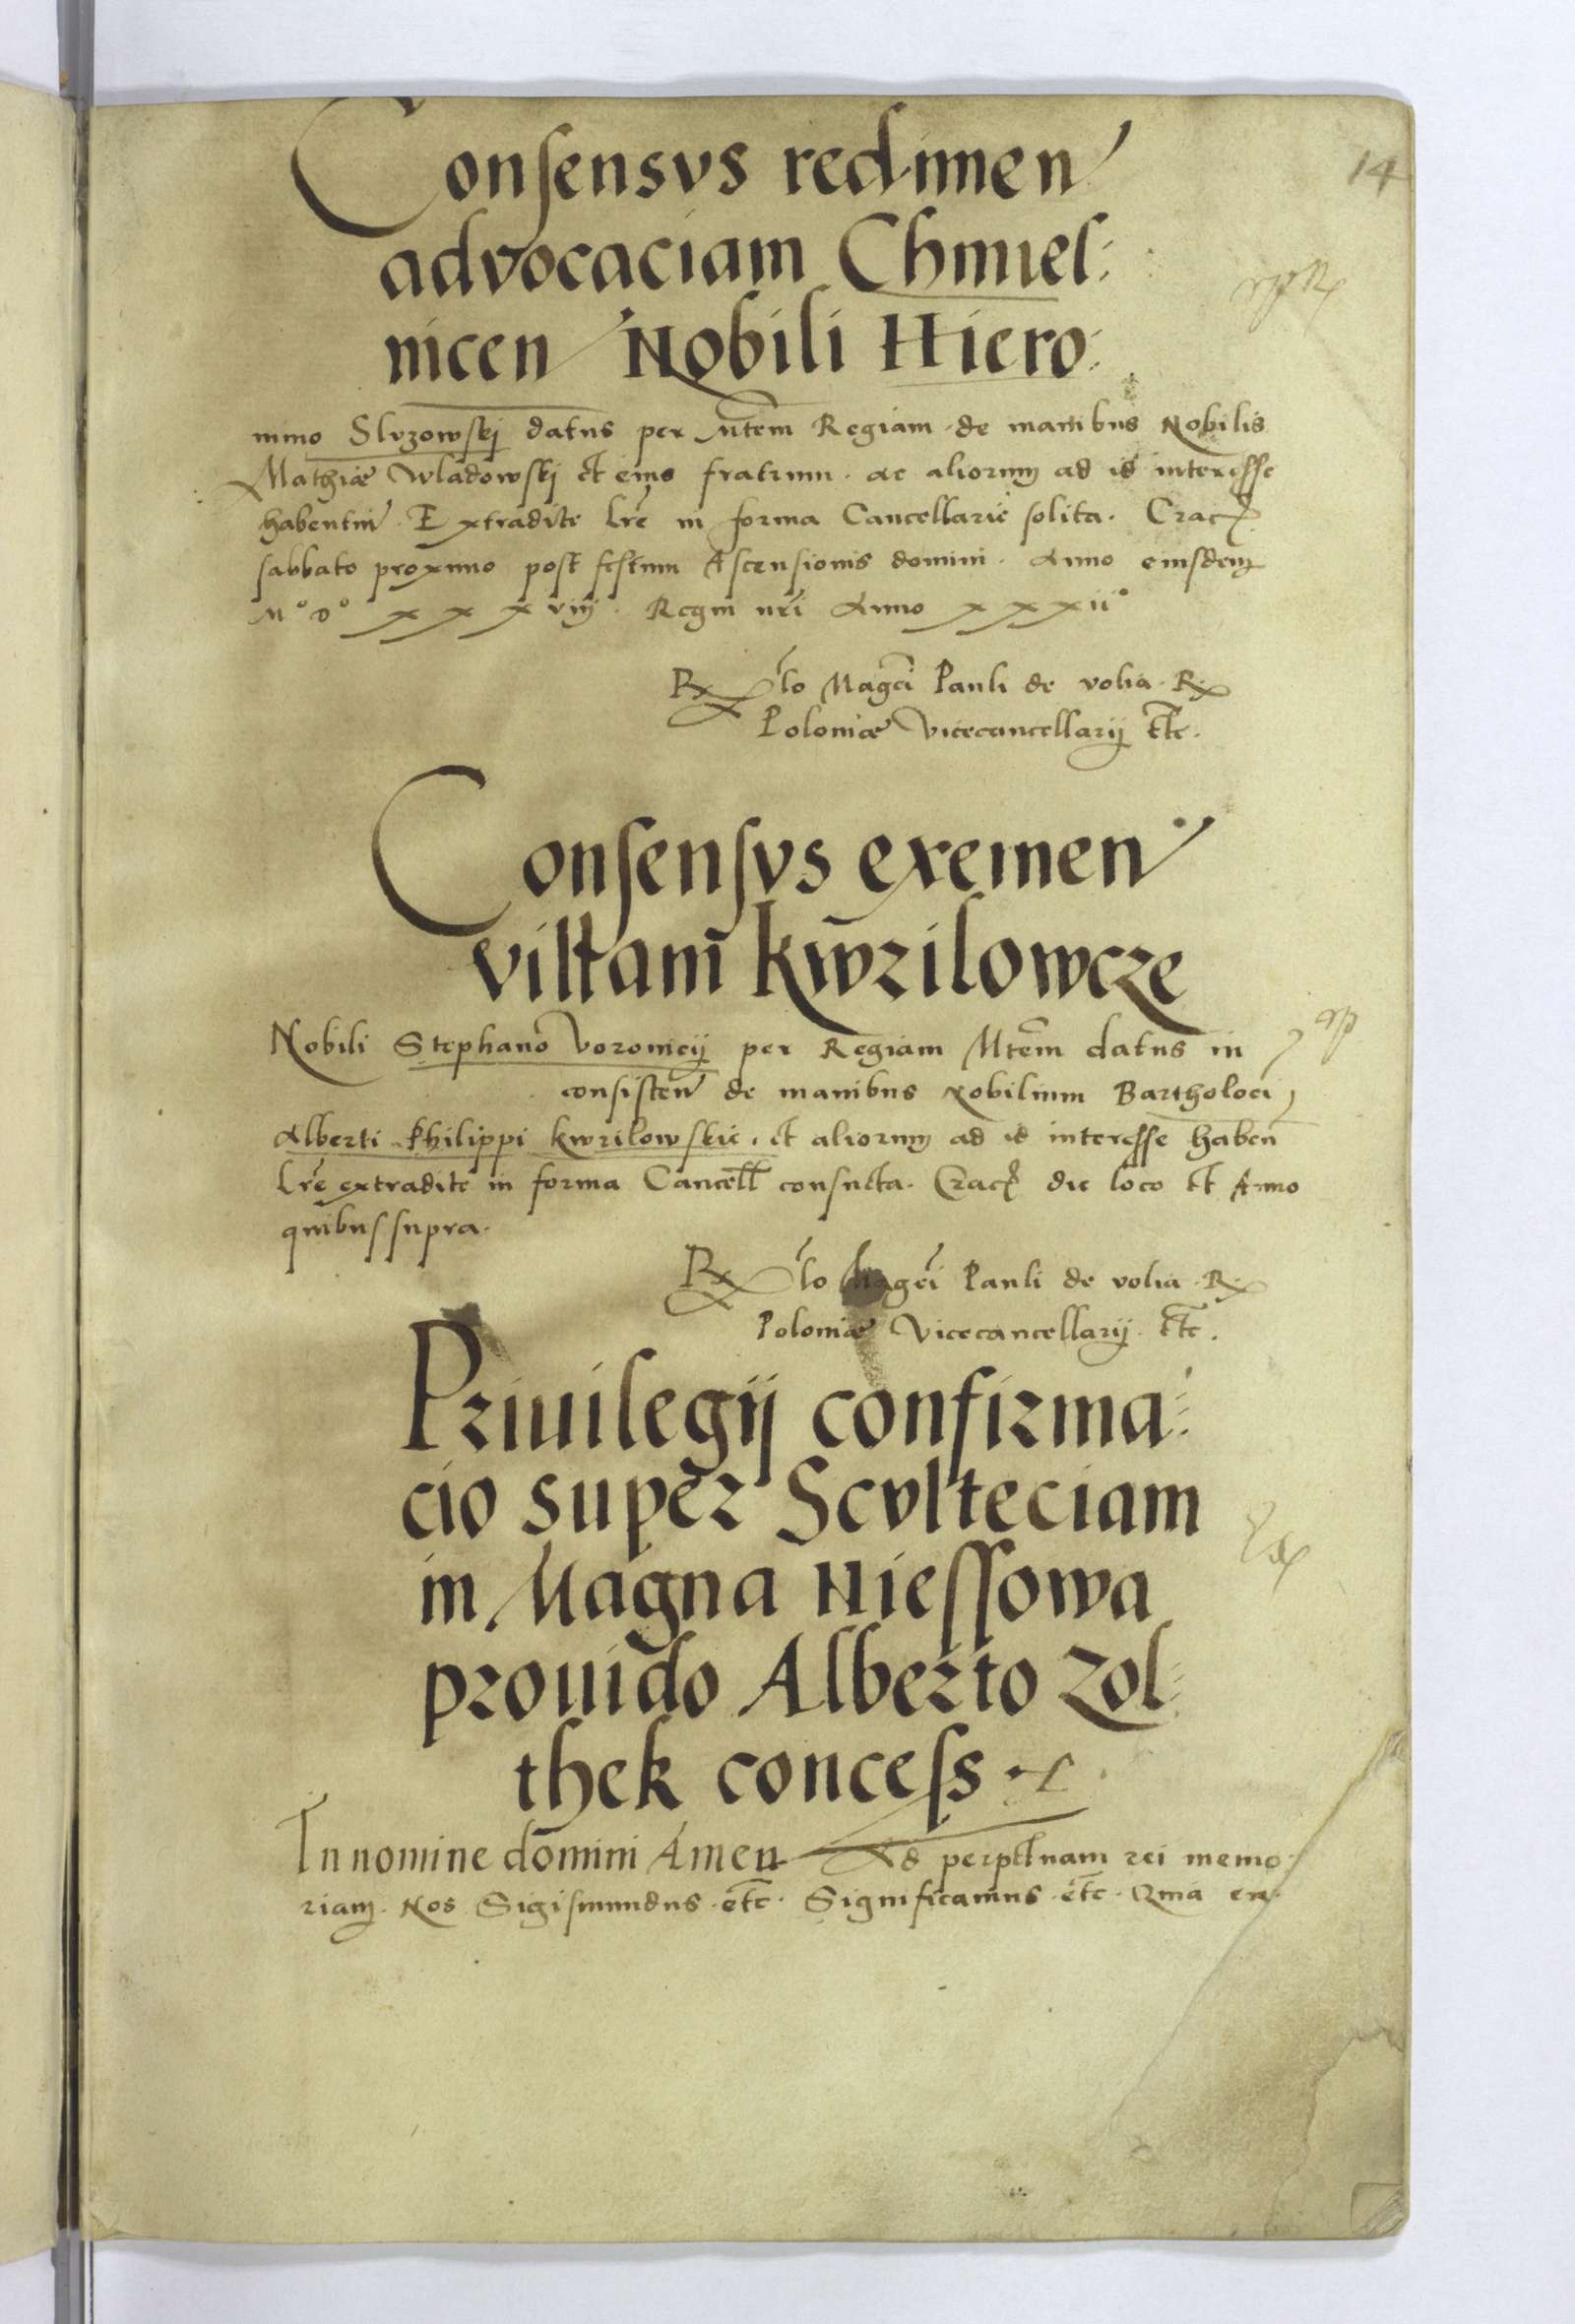 14
Consensvs redimen
advocaciam Chmiel:
nicen Nobili Hiero:
nimo Slvzowskj datus per Mtem Regiam de manibus Nobilis
Mathiæ Wladowskj et eius fratrum. ac aliorum ad id interesse
habentiu. Extradite Lre in forma Cancellarie solita. Crac
sabbato proximo post festum Ascensionis domini. Anno eiusdem
M° D° xxxviij. Regni nri Anno xxxii°
Rx Rlo Magci Pauli de volia. R.
Poloniæ Vicecancellarij etc.
Consensvs eximen
villam kwrilowcze
Nobili Stephano Voroniecij per Regiam Mtem datus in
consisten de manibus Nobilium Bartholoci
Alberti Philippi kwrilowskie. et aliorum ad id interesse haben
Lre extradite in forma Cancell consueta. Crac die loco et Anno
quibus supra.
Rx Rlo Magci Pauli de volia. R.
Poloniæ Vicecancellarij. etc.
Priuilegij confirma:
cio super Scvlteciam
in Magna Niessowa
prouido Alberto Zol:
thek concess
In nomine domini Amen Ad perpetuam rei memo:
riam. Nos Sigismundus. etc. Significamus. etc. Qma en.